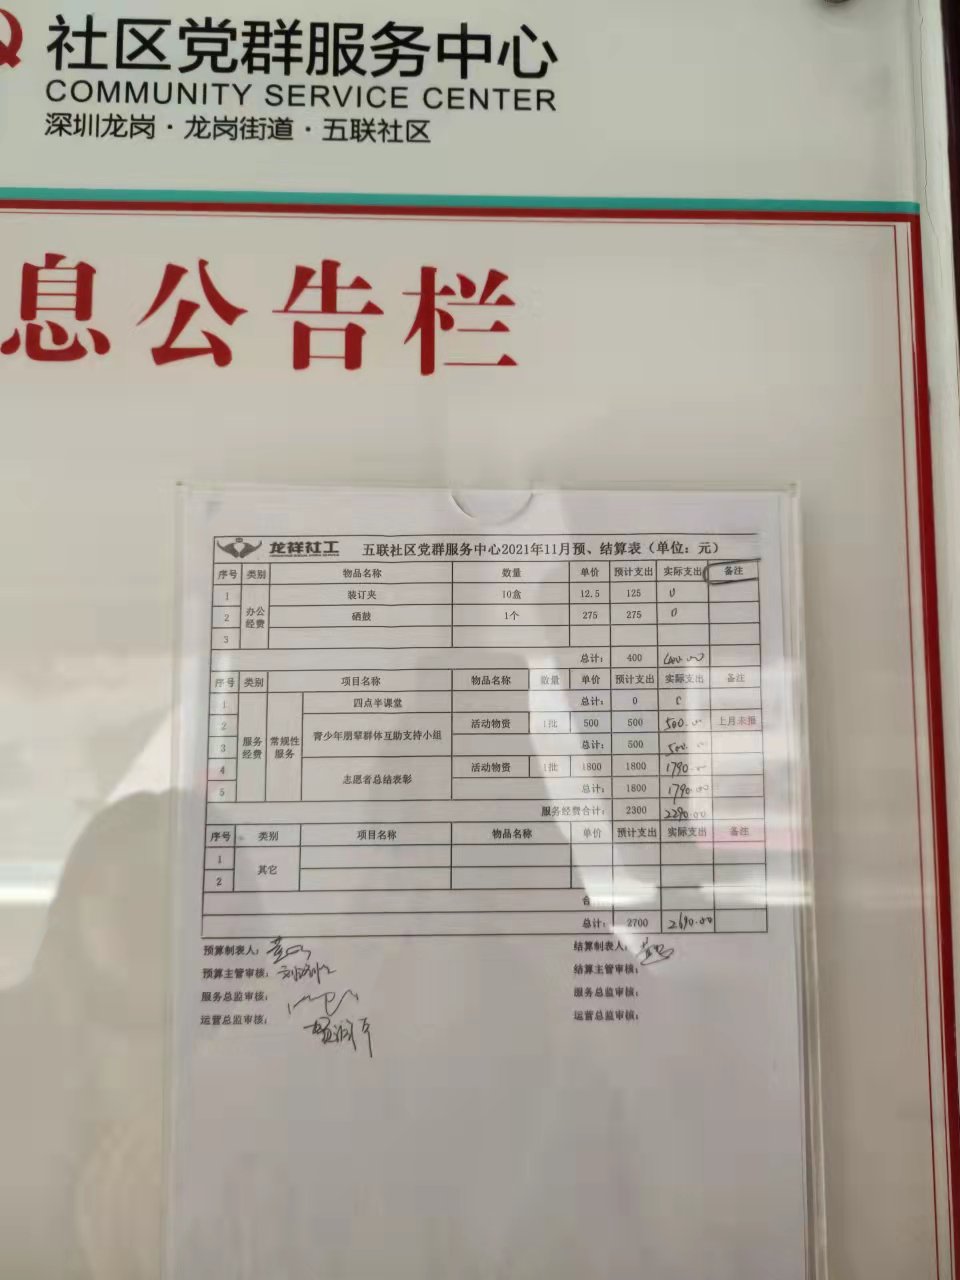 社区党群服务中心
COMMUNITY SERVICE CENTER
深圳龙岗·龙岗街道·五联社区
息公告栏
龙祥社工 五联社区党群服务中心2021年11月预、结算表（单位：元）
序号 类别 物品名称 数量 单价 预计支出 实际支出 备注
1 办公经费 装订夹 10盒 12.5 125 0
2 硒鼓 1个 275 275 0
3
总计： 400 400.00
序号 类别 项目名称 物品名称 数量 单价 预计支出 实际支出 备注
1 服务经费 常规性服务 四点半课堂 总计： 0 0
2 青少年朋辈群体互助支持小组 活动物资 1批 500 500 500.00 上月未报
3 总计： 500 500.00
4 志愿者总结表彰 活动物资 1批 1800 1800 1790.00
5 总计： 1800 1790.00
服务经费合计： 2300 2290.00
序号 类别 项目名称 物品名称 单价 预计支出 实际支出 备注
1 其它
2
合
总计： 2700 2690.00
预算制表人： 结算制表人：
预算主管审核： 结算主管审核：
服务总监审核： 服务总监审核：
运营总监审核： 运营总监审核：